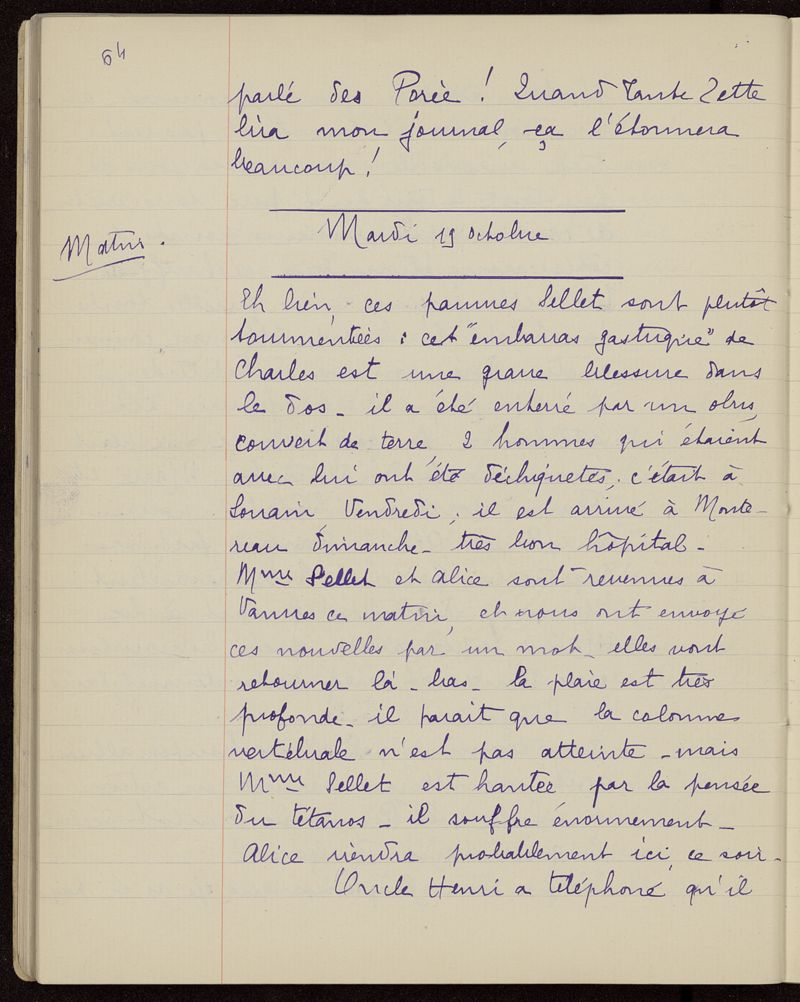 64
parlé des Porée ! Quand Tante Zette
lira mon journal, ça l'étonnera
beaucoup !
Mardi 19 Octobre
Matin.
Eh bien, ces pauvres Sellet sont plutôt
tourmentées : cet "embarras gastrique" de
Charles est une grave blessure dans
le dos - il a été enterré par un obus,
couvert de terre, 2 hommes qui étaient
avec lui ont été déchiquetés, c'était à
Souain, Vendredi ; il est arrivé à Monte-
reau dimanche - très bon hôpital -
Mme Sellet et Alice sont revenues à
Vannes ce matin, et nous ont envoyé
ces nouvelles par un mot - elles vont
retourner là-bas - la plaie est très
profonde - il parait que la colonne
vertébrale n'est pas atteinte - mais
Mme Sellet est hantée par la pensée
du tétanos - il souffre énormément -
Alice viendra probablement ici, ce soir -
Oncle Henri a téléphoné, qu'il